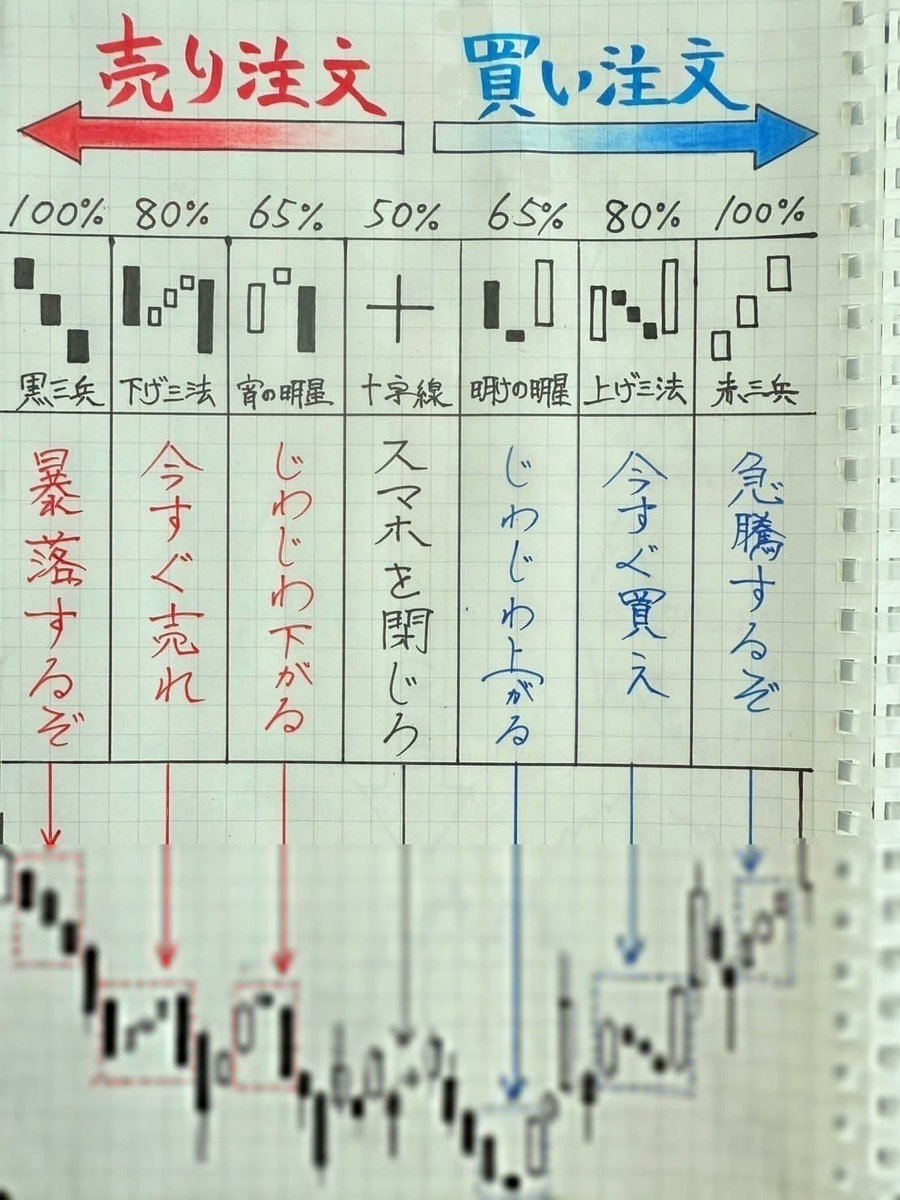 売り注文 買い注文
100% 80% 65% 50% 65% 80% 100%
黒三兵 下げ三法 宵の明星 十字線 明けの明星 上げ三法 赤三兵
暴落するぞ
今すぐ売れ
じわじわ下がる
スマホを閉じろ
じわじわ上がる
今すぐ買え
急騰するぞ